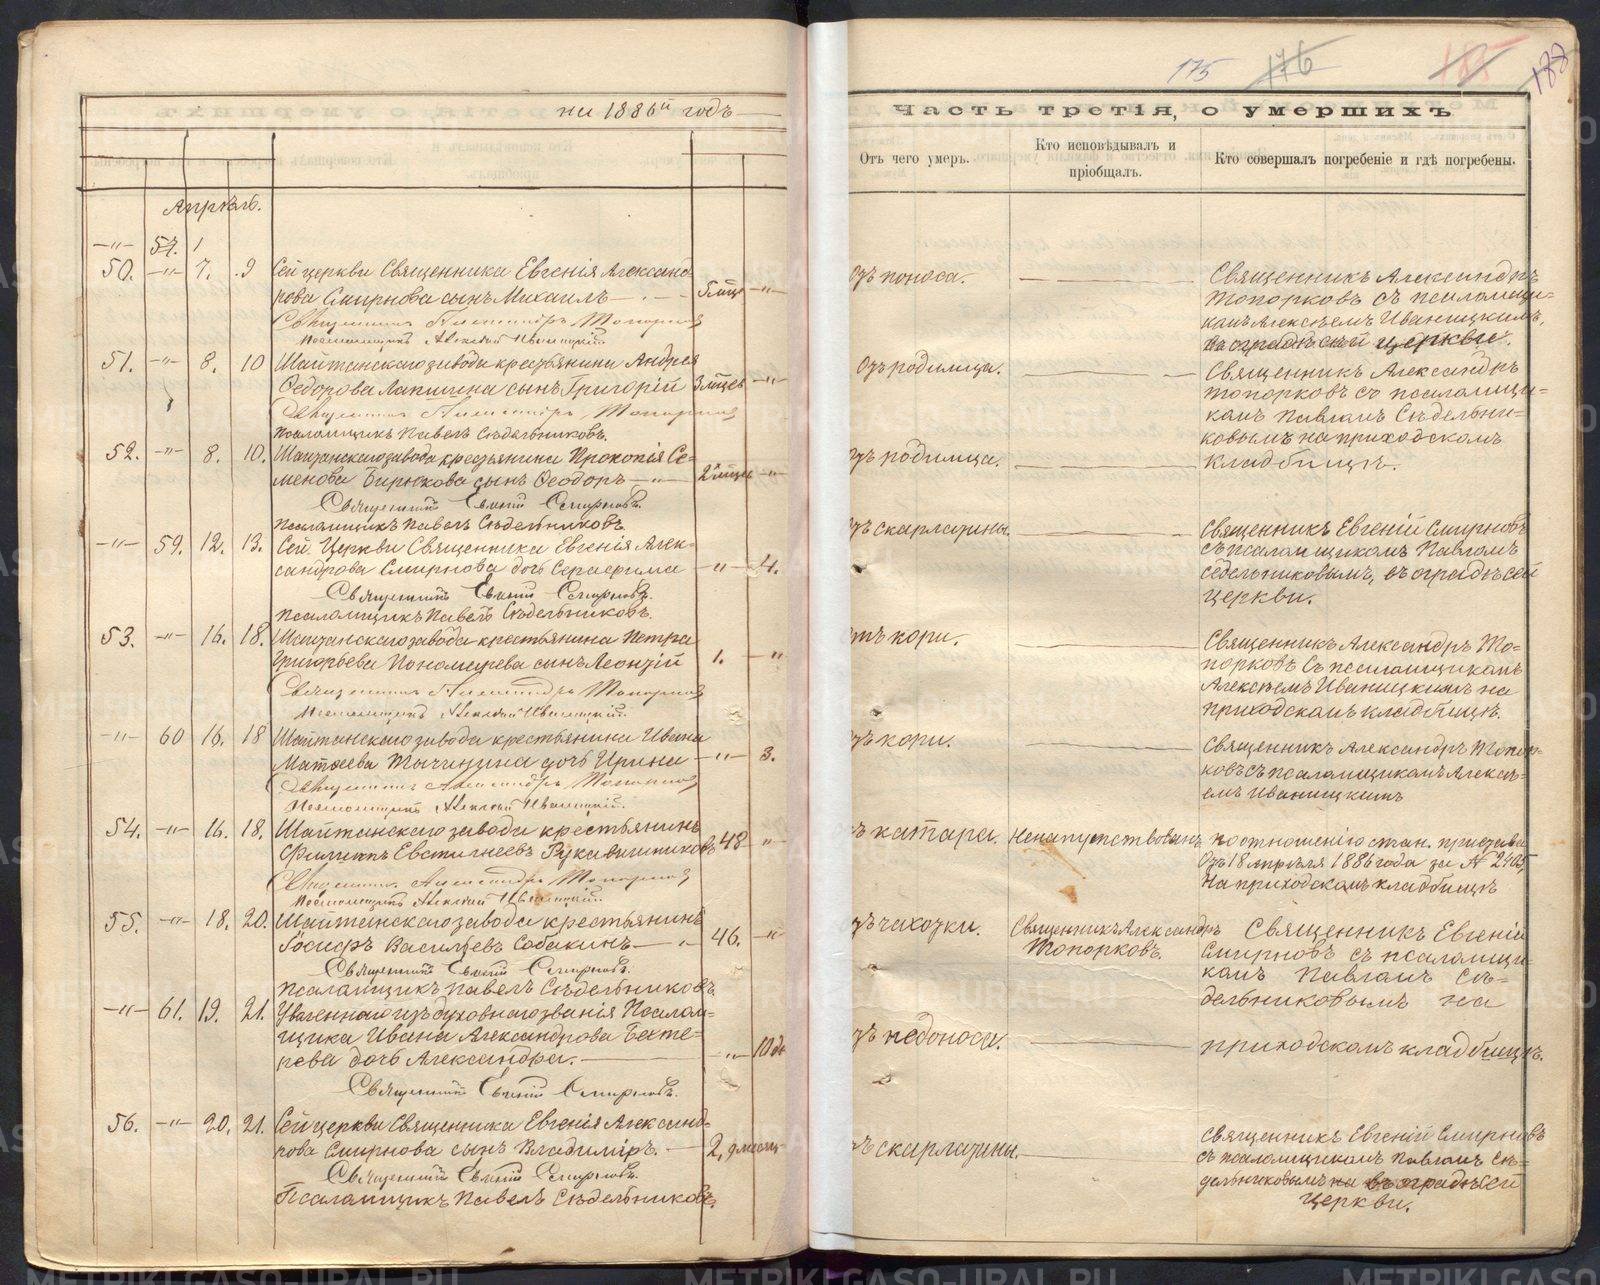 175 176 188
на 1886й годъ
Часть третія, о умершихъ
Отъ чего умеръ.
Кто исповѣдывалъ и пріобщалъ.
Кто совершалъ погребеніе и гдѣ погребены.
Апрѣль.
50. —"— 7. 9 Сей церкви Священника Евгенія Александ-
рова Смирнова сынъ Михаилъ
Священникъ Александръ Топорковъ
Псаломщикъ Алексѣй Иваницкій.
51. —"— 8. 10 Шайтанскаго завода крестьянина Андрея
Ѳедорова Лапшина сынъ Григорій 3 мѣсц —"—
Священникъ Александръ Топорковъ
Псаломщикъ Павелъ Сѣдельниковъ.
52. —"— 8. 10. Шайтанскаго завода крестьянина Прокопія Се-
менова Бирюкова сынъ Ѳеодоръ —"—
Священникъ Евгеній Смирновъ.
Псаломщикъ Павелъ Сѣдельниковъ
—"— 59. 12. 13. Сей Церкви Священника Евгенія Алек-
сандрова Смирнова дочь Серафима —"— 4.
Священникъ Евгеній Смирновъ.
Псаломщикъ Павелъ Сѣдельниковъ.
53. —"— 16. 18. Шайтанскаго завода крестьянина Петра
Григорьева Пономарева сынъ Леонтій 1. —"—
Священникъ Александръ Топорковъ
Псаломщикъ Алексѣй Иваницкій.
—"— 60 16. 18 Шайтанскаго завода крестьянина Ивана
Матѳеева Тычинина дочь Ирина —"— 3.
Священникъ Александръ Топорковъ
Псаломщикъ Алексѣй Иваницкій.
54. —"— 16. 18. Шайтанскаго завода крестьянинъ
Филиппъ Евстигнеевъ Рукавишниковъ 48 —"—
Священникъ Александръ Топорковъ
Псаломщикъ Алексѣй Иваницкій
55. —"— 18. 20. Шайтанскаго завода крестьянинъ
Іосифъ Васильевъ Собакинъ 46. —"—
Священникъ Евгеній Смирновъ.
Псаломщикъ Павелъ Сѣдельниковъ
—"— 61. 19. 21. Уволеннаго изъ духовнаго званія Псалом-
щика Ивана Александрова Бехте-
рева дочь Александра. —"— 10 дн
Священникъ Евгеній Смирновъ.
56. —"— 20. 21. Сей церкви Священника Евгенія Александ-
рова Смирнова сынъ Владиміръ.
Священникъ Евгеній Смирновъ.
Псаломщикъ Павелъ Сѣдельниковъ.
поноса.
Священникъ Александръ
Топорковъ съ псаломщи-
комъ Алексѣемъ Иваницкимъ,
въ оградѣ сей церкви.
родимца.
Священникъ Александръ
Топорковъ съ псаломщи-
комъ Павломъ Сѣдельни-
ковымъ на приходскомъ
родимца. кладбищѣ.
скарлатины.
Священникъ Евгеній Смирновъ
съ псаломщикомъ Павломъ
Седельниковымъ, въ оградѣ сей
церкви.
кори.
Священникъ Александръ То-
порковъ съ псаломщикомъ
Алексѣемъ Иваницкимъ на
приходскомъ кладбищѣ.
кори.
Священникъ Александръ Топор-
ковъ съ псаломщикомъ Алексѣ-
емъ Иваницкимъ
катара. Ненапутствованъ по отношенію стан. пристава
отъ 18 апрѣля 1886 года за № 2405
На приходскомъ кладбищѣ
чахотки. Священникъ Александръ
Топорковъ.
Священникъ Евгеній
Смирновъ съ псаломщи-
комъ Павломъ Сѣ-
дельниковымъ на
недоноса. приходскомъ кладбищѣ.
скарлатины.
Священникъ Евгеній Смирновъ
съ псаломщикомъ Павломъ Сѣ-
дельниковымъ въ оградѣ сей
церкви.
METRIKI.GASO-URAL.RU